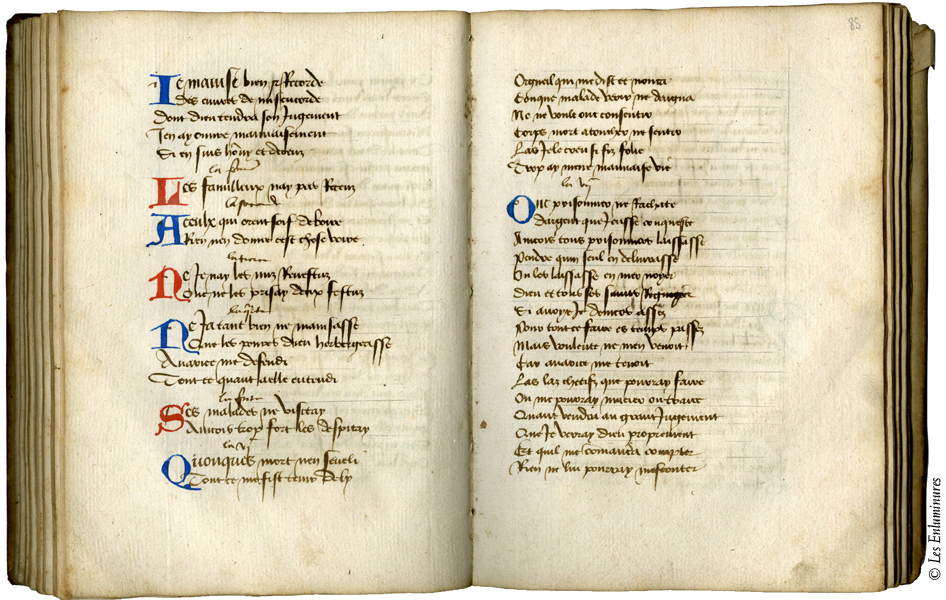 Je mauise bien & Recorde
Des euures de misericorde
Dont dieu tendra son Jugement
Jen ay ouure mauuaisement
Si en suis hony et deceu
la pre
Les familleux nay pas Receu
la seconde
A ceulx qui orent soif de boire
Rien nen donne cest chose voire
la tierce
Ne Je nay les nuz Reuestuz
Que ne les prisay deux festuz
la quarte
Ne Ja tant bien ne mausasse
Que les poures dieu herbergasse
Auarice me defendi
Tout ce quant a elle entendi
la quinte
Les malades ne visitay
Ancois trop fort les despitay
la vi
Quonques mort nen seueli
Tout ce me fist
85
Orgueil qui me dist et nonca
Conque malade veoir ne daigna
Ne ne voult onc consentir
Corps mort atoucher ne sentir
Las Je le creu si fiz folie
Trop ay mene mauuaise vie
la vii
Onc prisonnier ne Rachate
Dargent que Jeusse conqueste
Ancois tous prisonniers laissasse
Pendre quun seul en deliurasse
Ou les laissasse en mer noyer
Dieu et tous ses sains Regnoyer
Si auoye Je deniers assez
Pour tout ce faire es temps passez
Mais voulente ne men venoit
Car auarice me tenoit
Las laz chetif que pourray faire
Ou me pourray mucier ou traire
Quant vendra au grant Jugement
Que Je verray dieu proprement
Et quil me comandra compter
Rien ne lui pourray mesconter
© Les Enluminures